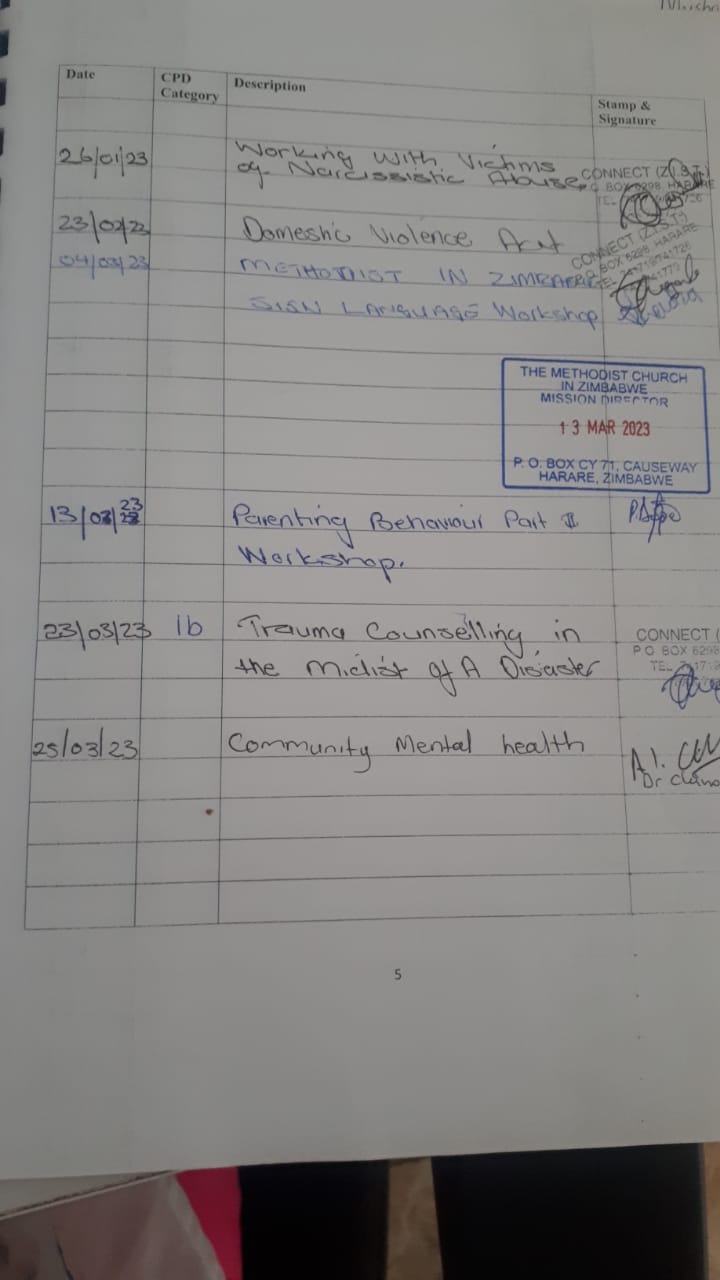 Date
CPD
Category
Description
Stamp &
Signature
26/01/23
Working With Victims
of Narcissistic Abuse
CONNECT
BOX 6298 HARARE
TEL
23/02/23
Domestic Violence Act
CONNECT (Z.I.S.T)
P.O. BOX 6298 HARARE
TEL
04/03/23
METHODIST IN ZIMBABWE
SIGN LANGUAGE Workshop
THE METHODIST CHURCH
IN ZIMBABWE
MISSION DIRECTOR
13 MAR 2023
P. O. BOX CY 71, CAUSEWAY
HARARE, ZIMBABWE
13/03/23
Parenting Behaviour Part II
Workshop.
23/03/23
1b
Trauma Counselling in
the Midist of A Disaster
CONNECT (
P O BOX 6298
TEL
25/03/23
Community Mental health
Dr
5